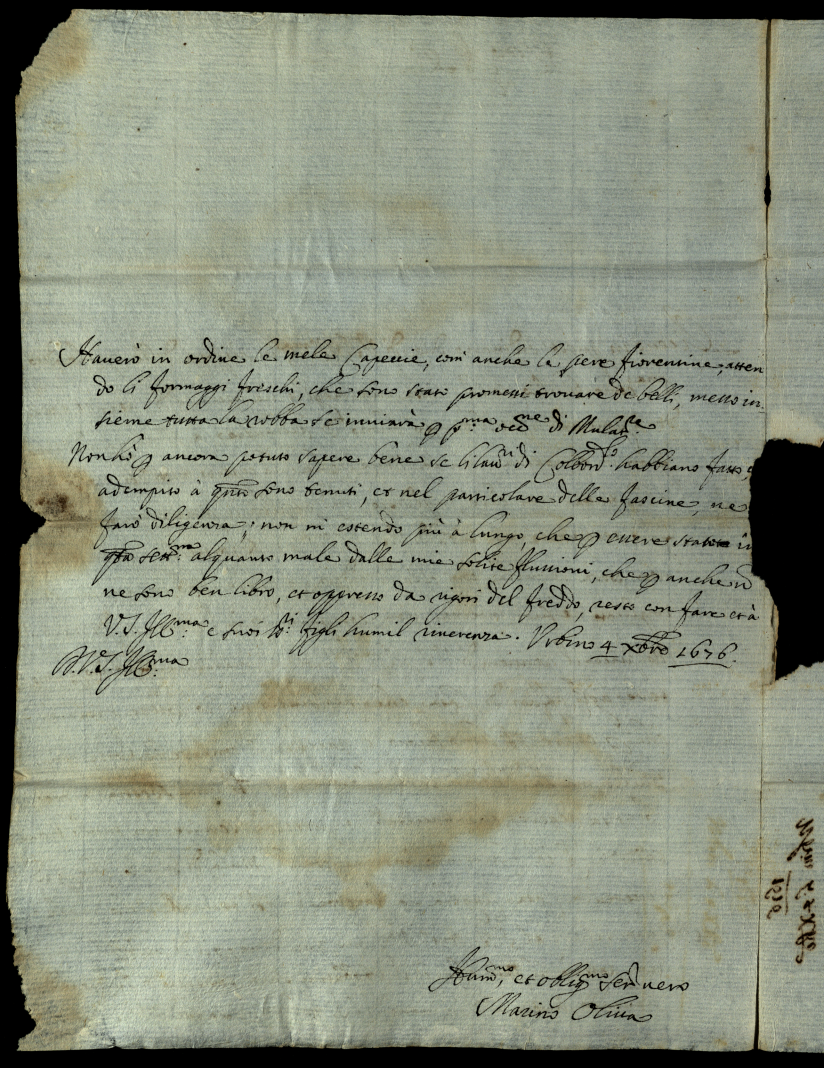 Haverò in ordine le mele Capeccie, com'anche le pere fiorentine, atten
do li formaggi freschi, che sono stato promessi trovare de belli, messo in-
sieme tutta la robba se inviarà p p.ma occ.ne di Mulat.re
Non hò p ancora potuto sapere bene se li lau.ri di Colbord.lo habbiano fatto,
adempito à q.nto sono tenuti, et nel particolare delle fascine, ne
farò diligenza; non mi estendo più à lungo, che p essere stato in
q.ta sett.na alquanto male dalle mie solite flussioni, che p anche n
ne sono ben libro, et oppresso da rigori del freddo, resto con fare et à
V.S. Ill.ma e suoi SS.ri figli humil riverenza. Urbino 4 Xbre 1676.
D.V.S. Ill.ma
Hum.mo, et oblig.mo Ser. vero
Marino Oliva
1676